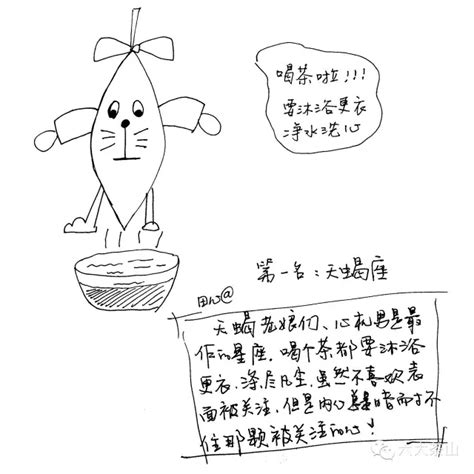 喝茶啦!!!
要沐浴更衣
净水洗心
第一名:天蝎座
@
天蝎老娘们、心机男是最
作的星座,喝个茶都要沐浴
更衣,涤尽凡尘,虽然不喜欢表
面被关注,但是内心暗而才不
住那颗被关注的心!